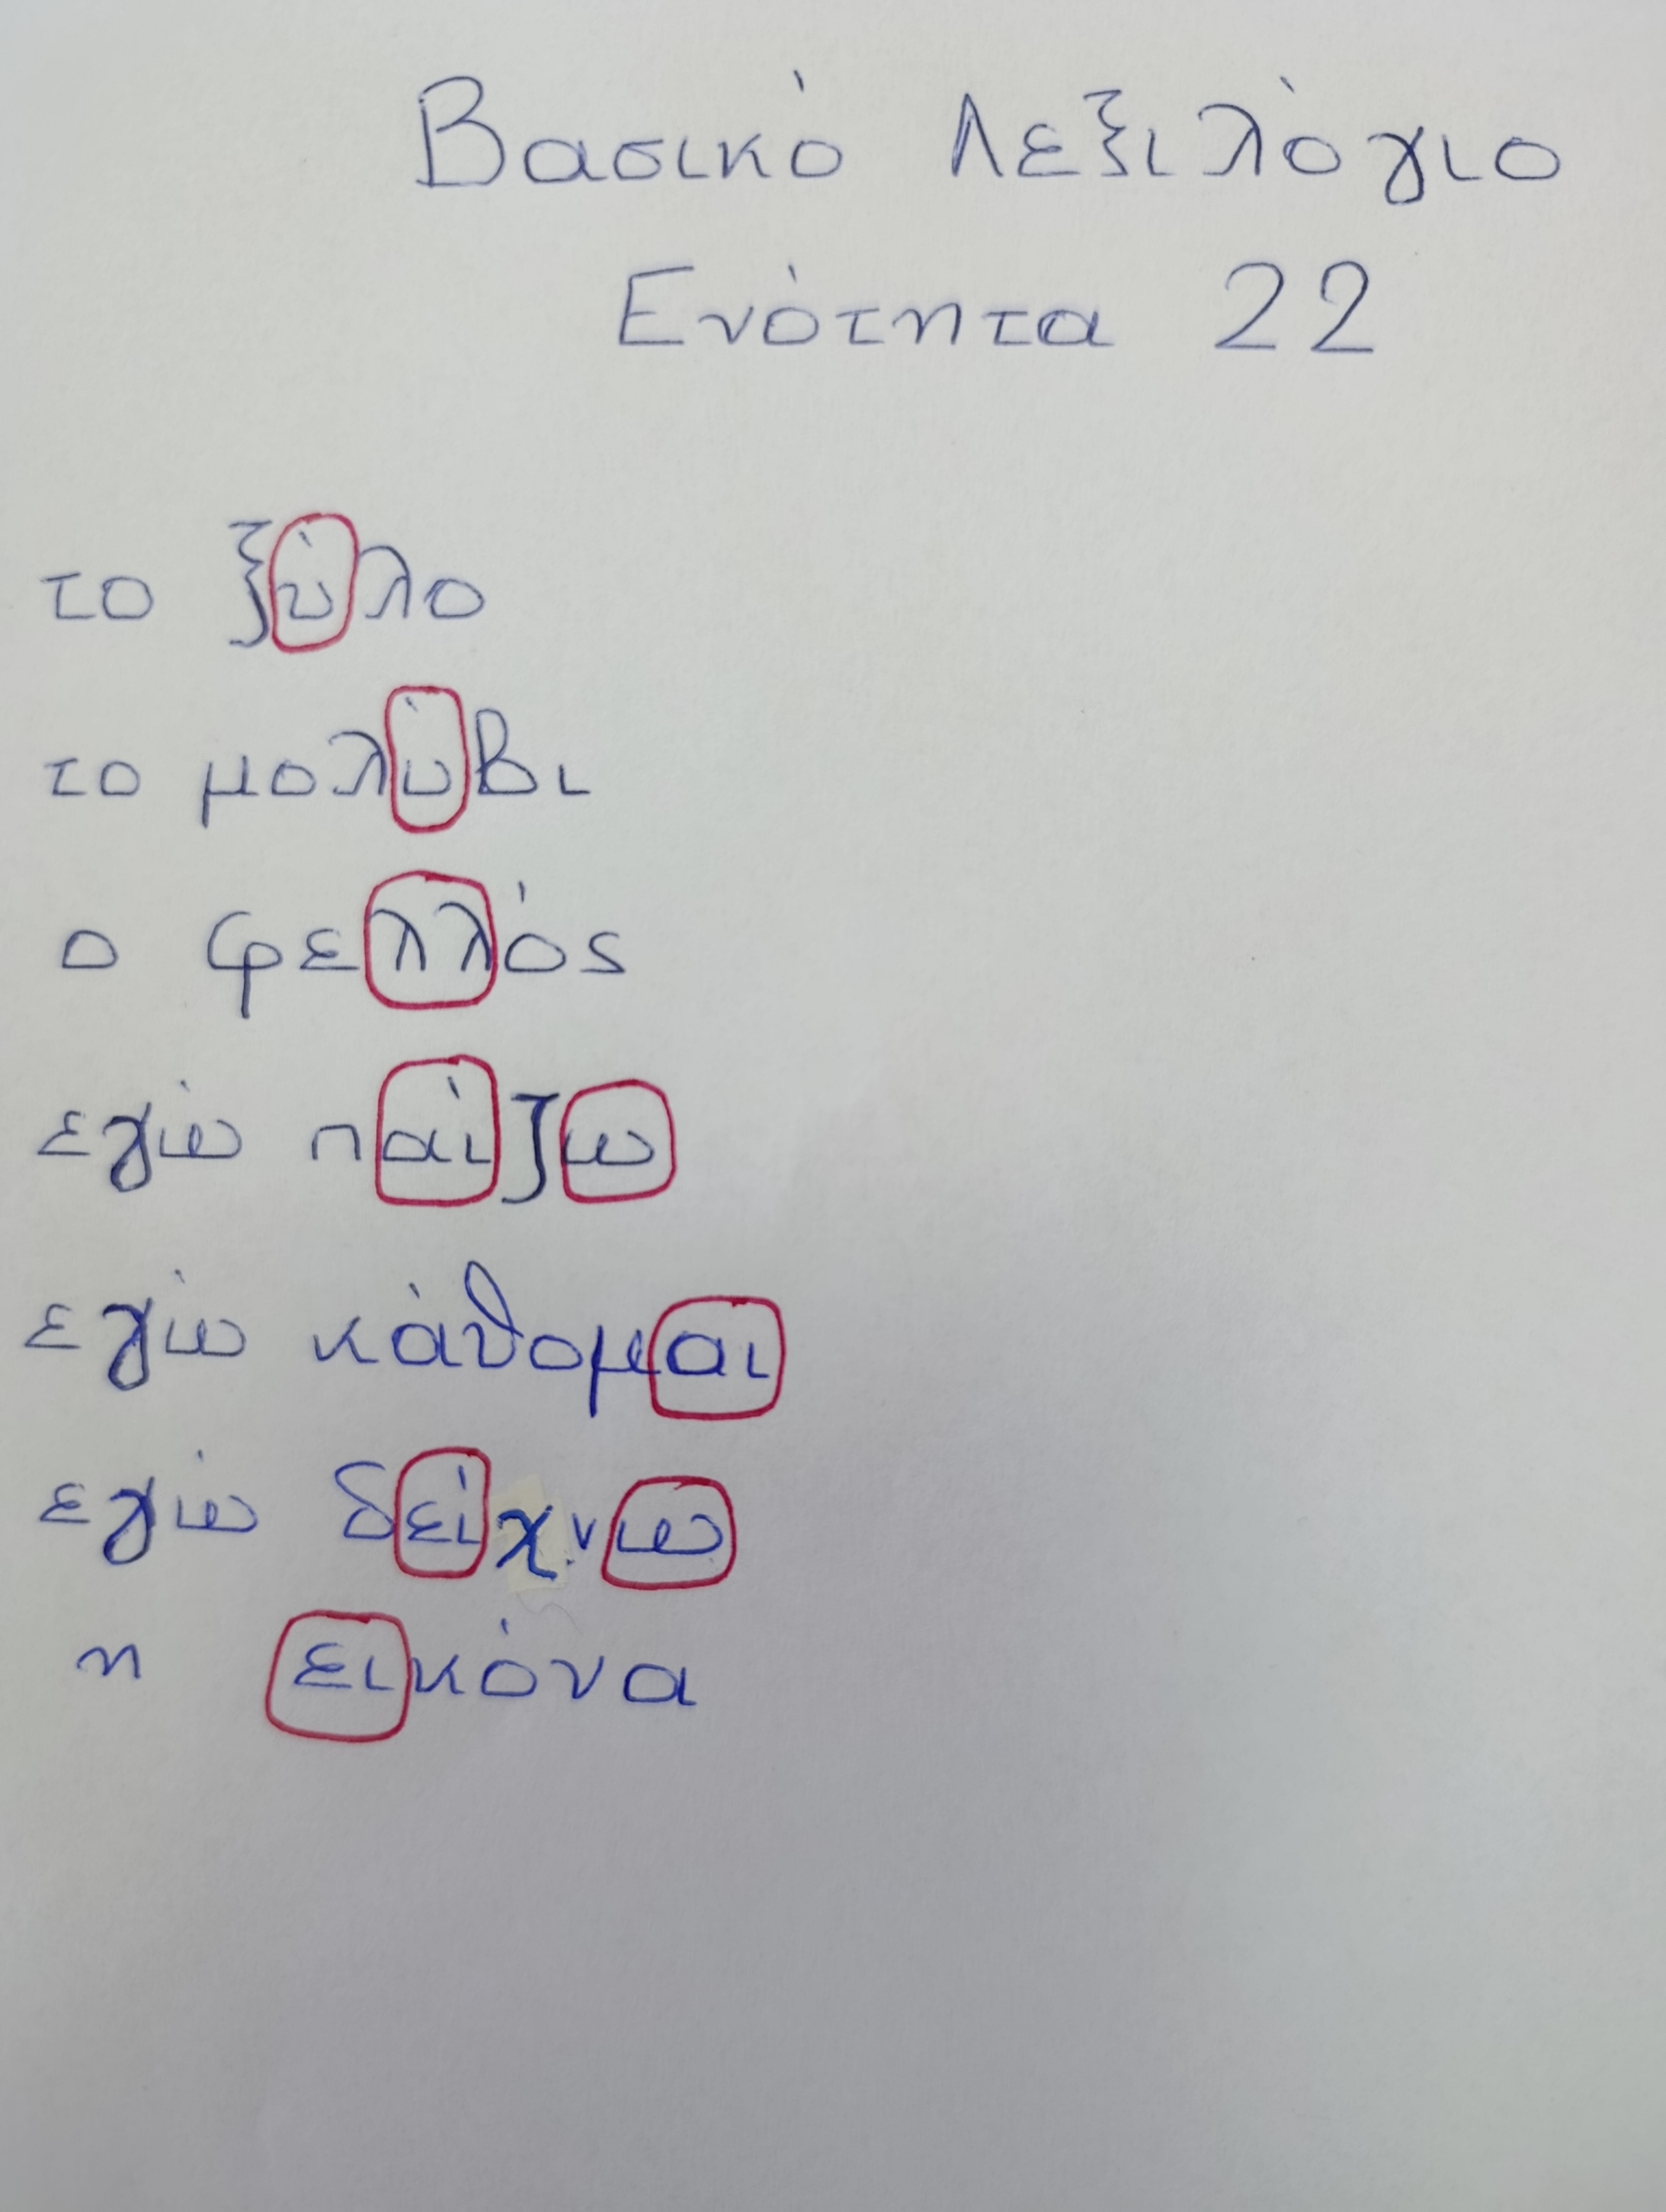 Βασικό Λεξιλόγιο
Ενότητα 22
το ξύλο
το μολύβι
ο φελλός
εγώ παίζω
εγώ κάθομαι
εγώ δείχνω
η εικόνα